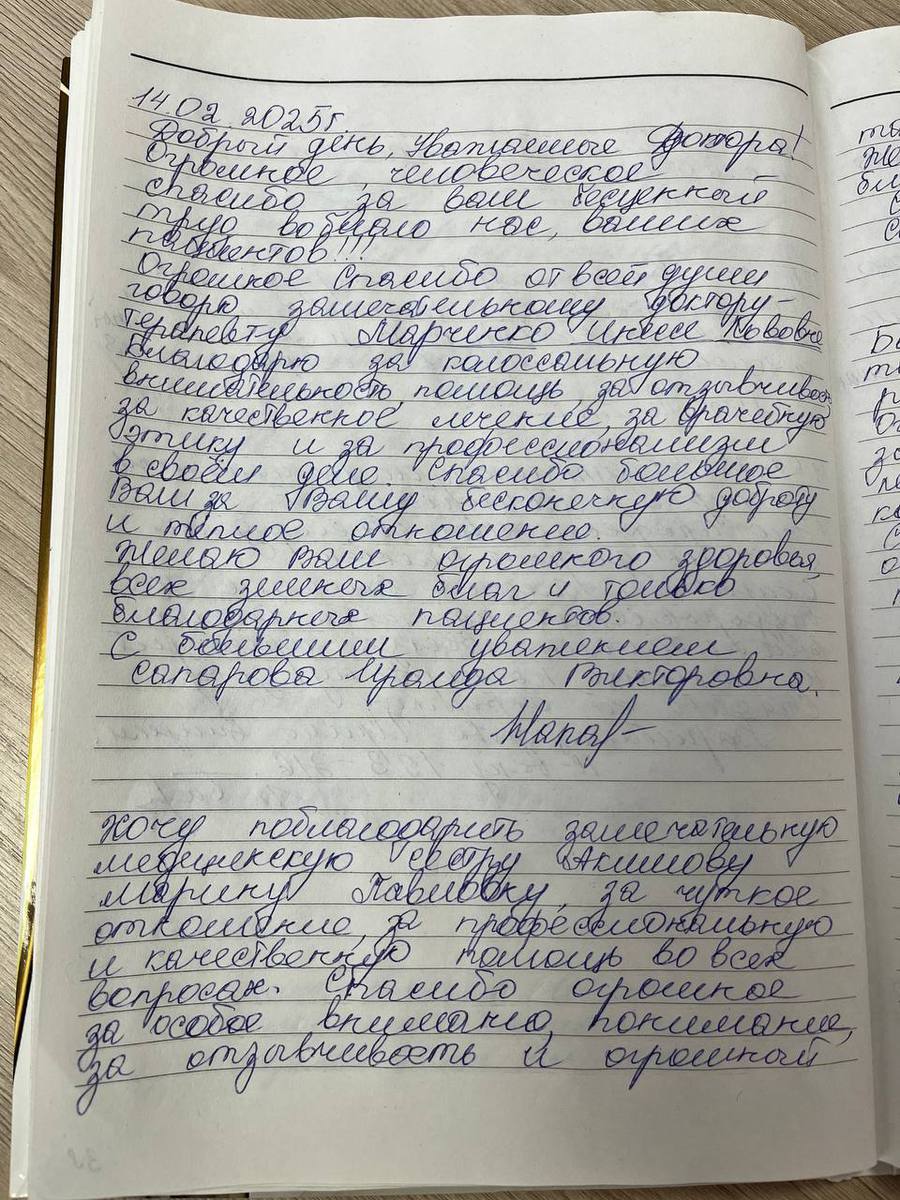 14.02.2025г
Добрый день, Уважаемые Доктора!
Огромное человеческое
спасибо за ваш бесценный
труд во благо нас, ваших
пациентов!!!
Огромное Спасибо от всей души
говорю замечательному доктору-
терапевту Марченко Инессе Львовне
Благодарю за колоссальную
внимательность, помощь, за отзывчивость
за качественное лечение, за врачебную
этику и за профессионализм
в своём деле. Спасибо большое
Вам за Вашу бесконечную доброту
и теплое отношение.
Желаю Вам огромного здоровья,
всех земных благ и только
благодарных пациентов.
С большим уважением
Сапарова Ираида Викторовна.
Хочу поблагодарить замечательную
медицинскую сестру Акимову
Марину Павловну, за чуткое
отношение, за профессиональную
и качественную помощь во всех
вопросах. Спасибо огромное
за особое внимание, понимание,
за отзывчивость и огромный